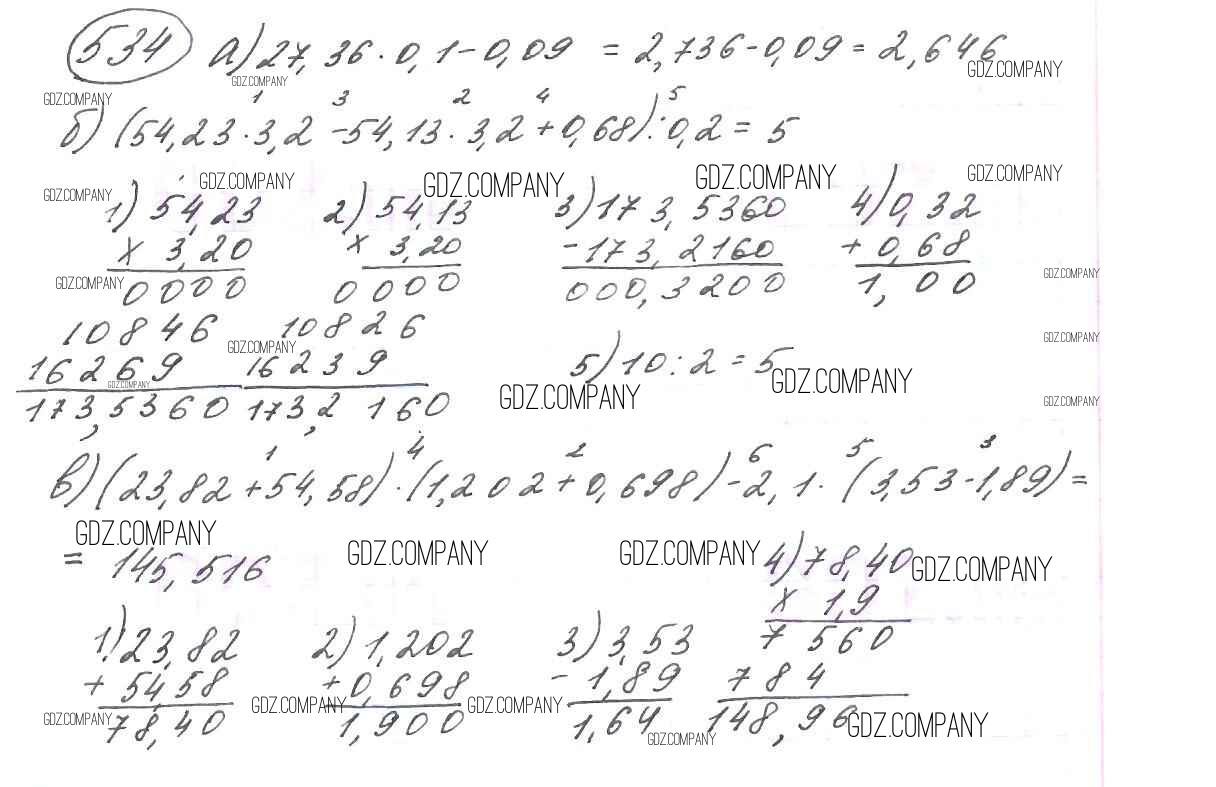 534 а) 27,36 · 0,1 - 0,09 = 2,736 - 0,09 = 2,646
GDZ.COMPANY GDZ.COMPANY GDZ.COMPANY
1 3 2 4 5
б) (54,23 · 3,2 - 54,13 · 3,2 + 0,68) : 0,2 = 5
GDZ.COMPANY GDZ.COMPANY GDZ.COMPANY GDZ.COMPANY GDZ.COMPANY
1) 54,23 2) 54,13 3) 173,5360 4) 0,32
× 3,20 × 3,20 - 173,2160 + 0,68
GDZ.COMPANY 0000 0000 000,3200 1,00 GDZ.COMPANY
10846 10826 GDZ.COMPANY
GDZ.COMPANY
16269 16239 5) 10 : 2 = 5
GDZ.COMPANY GDZ.COMPANY GDZ.COMPANY GDZ.COMPANY
173,5360 173,2160
1 4 2 6 5 3
в) (23,82 + 54,58) · (1,202 + 0,698) - 2,1 · (3,53 - 1,89) =
GDZ.COMPANY GDZ.COMPANY GDZ.COMPANY GDZ.COMPANY
= 145,516 4) 78,40
× 1,9
1) 23,82 2) 1,202 3) 3,53 7560
+ 54,58 + 0,698 - 1,89 784
GDZ.COMPANY GDZ.COMPANY GDZ.COMPANY GDZ.COMPANY
78,40 1,900 1,64 148,96
GDZ.COMPANY